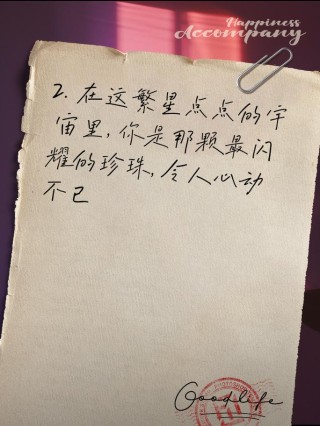 Happiness
Accompany
2. 在这繁星点点的宇
宙里，你是那颗最闪
耀的珍珠，令人心动
不已
Goodlife